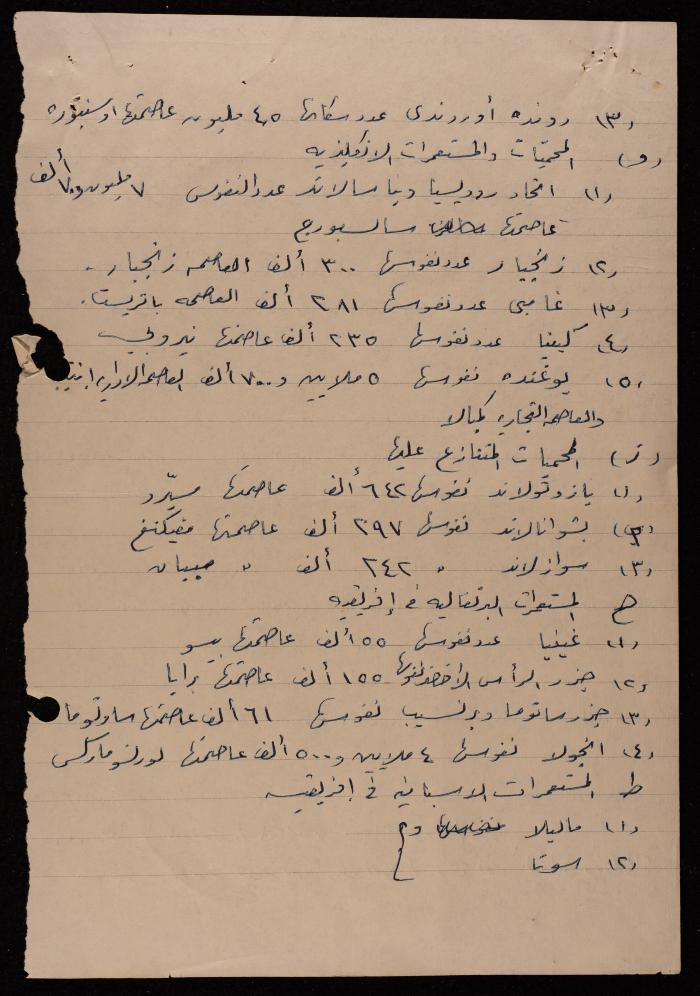 (١٣) رونده أوروندى عدد سكانها ٤٫٥ مليون عاصمتها اوسنبوره
(و) المحميات والمستعمرات الانكليزيه
(١) اتحاد روديسيا ونياسالاند عدد النفوس ٧ مليون و٧٠٠ ألف
عاصمتها سالسبورج
(٢) زنجبار عدد نفوسها ٣٠٠ ألف العاصمه زنجبار .
(٣) غامبى عدد نفوسها ٢٨١ ألف العاصمه باتريستا.
(٤) كينيا عدد نفوسها ٢٣٥ ألف عاصمتها نيروبي
(٥) يوغنده نفوسها ٥ ملايين و٧٠٠ ألف العاصمه الاداريه
والعاصمه التجاريه كمبالا
(ز) المحميات المتنازع عليها
(١) بازوتولاند نفوسها ٦٤٢ ألف عاصمتها مسيرد
(٢) بشوانالاند نفوسها ٢٩٧ ألف عاصمتها مفيكنغ
(٣) سوازلاند " ٢٤٢ ألف "
ح المستعمرات البرتغاليه في إفريقيه
(١) غينيا عدد نفوسها ٥٥ ألف عاصمتها بيسو
(٢) جزر الرأس الاخضر نفوسها ١٥٥ ألف عاصمتها برايا
(٣) جزر ساتوما وبرنسيب نفوسها ٦١ ألف عاصمتها ساوتوما
(٤) انجولا نفوسها ٤ ملايين و٥٠٠ ألف عاصمتها لورنسوماركس
ط المستعمرات الاسبانيه في إفريقيه
(١) ماليلا
(٢) سوتا